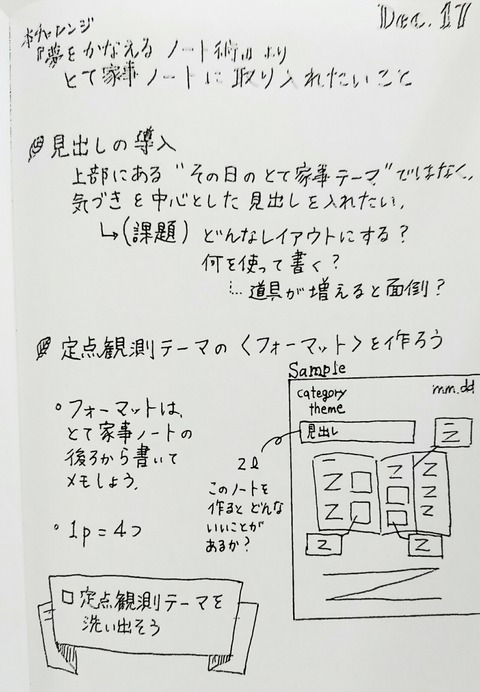 Dec. 17
本チャレンジ
『夢をかなえるノート術』より
とて家事ノートに取り入れたいこと
見出しの導入
上部にある"その日のとて家事テーマ"ではなく、
気づきを中心とした見出しを入れたい。
↳(課題) どんなレイアウトにする?
何を使って書く?
道具が増えると面倒?
定点観測テーマの〈フォーマット〉を作ろう
・フォーマットは、
とて家事ノートの
後ろから書いて
メモしよう。
・1p=4つ
□定点観測テーマを
洗い出そう
Sample
category
theme
mm.dd
見出し
このノートを
作るとどんな
いいことが
あるか?